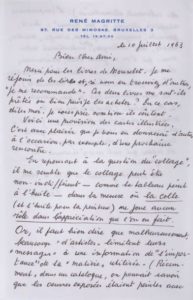 RENÉ MAGRITTE
97, RUE DES MIMOSAS, BRUXELLES 3
TÉL. 15.07.30
le 10 juillet 1963
Bien cher Ami,
Merci pour les livres de
réjouis de les lire et, si vous en d'autres
"je me recommande". Ces deux livres me sont-ils
prêtés ou bien puis-je les acheter? En ce cas,
dites-moi, je vous prie, combien ils coûtent.
Voici une provision de cartes illustrées.
C'est avec plaisir que je vous en donnerai d'autres,
à l'occasion, par exemple, d'une prochaine
rencontre.
En repensant à la question du "collage",
il me semble que le collage peut être
non-indifférent - comme le tableau peint
à l'huile - dans la mesure où la colle
(et l'huile pour la peinture) ne joue aucun
rôle dans l'appréciation que l'on en fait.
Or, il faut bien dire que malheureusement,
beaucoup d'artistes limitent leurs
"messages" à une information de "l'im-
portance" de la matière, utilisée - (Récem-
ment, dans un catalogue, on pouvait savoir
que les œuvres exposées étaient peintes avec